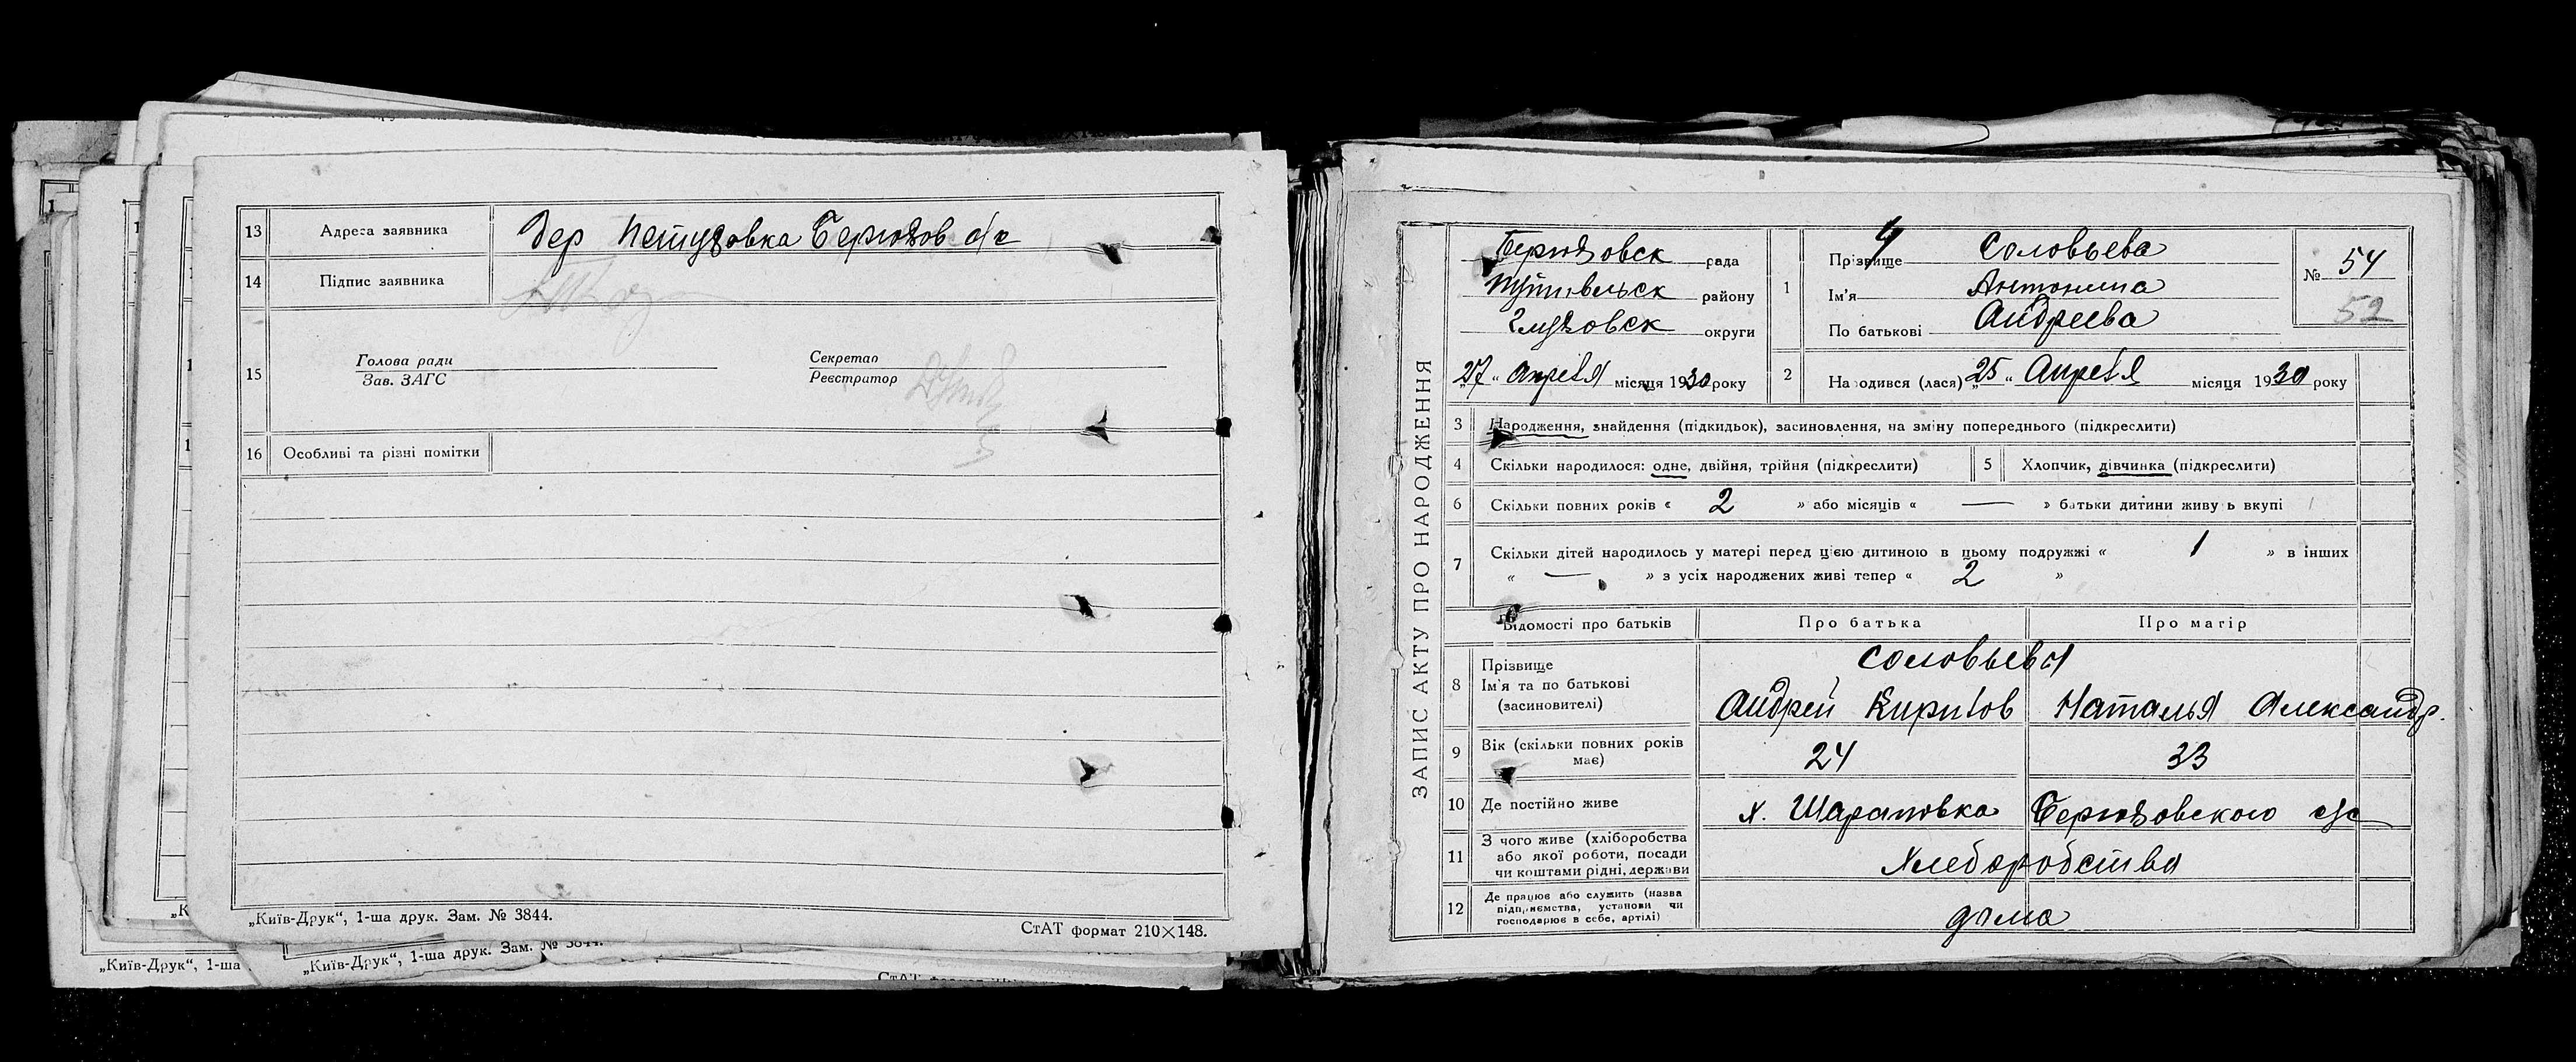 13 Адреса заявника дер Петуховка Берюхов с/с
14 Підпис заявника
15 Голова ради
Зав. ЗАГС
Секретар
Реєстратор
16 Особливі та різні помітки
„Київ-Друк“, 1-ша друк. Зам. № 3844.
СтАТ формат 210×148.
„Київ-Друк“, 1-ша
„Київ-Друк“, 1-ша друк. Зам. № 3844.
ЗАПИС АКТУ ПРО НАРОДЖЕННЯ
Берюховск рада
Путивльск району
Глуховск округи
„27“ Апреля місяця 1930 року
1 Прізвище Соловьева
Ім'я Антонина
По батькові Андреева
№ 54
52
2 Народився (лася) „25“ Апреля місяця 1930 року
3 Народження, знайдення (підкидьок), засиновлення, на зміну попереднього (підкреслити)
4 Скільки народилося: одне, двійня, трійня (підкреслити) 5 Хлопчик, дівчинка (підкреслити)
6 Скільки повних років « 2 » або місяців « — » батьки дитини живуть вкупі
7 Скільки дітей народилось у матері перед цією дитиною в цьому подружжі « 1 » в інших
« — » з усіх народжених живі тепер « 2 »
Відомості про батьків Про батька Про матір
8 Прізвище
Ім'я та по батькові
(засиновителі)
Соловьевы
Андрей Кирилов Наталья Александр.
9 Вік (скільки повних років
має)
24 33
10 Де постійно живе х. Шараповка Берюховского с/с
11 З чого живе (хліборобства
або якої роботи, посади
чи коштами рідні, держави
Хлеборобства
12 Де працює або служить (назва
підприємства, установи чи
господарює в себе, артілі)
дома